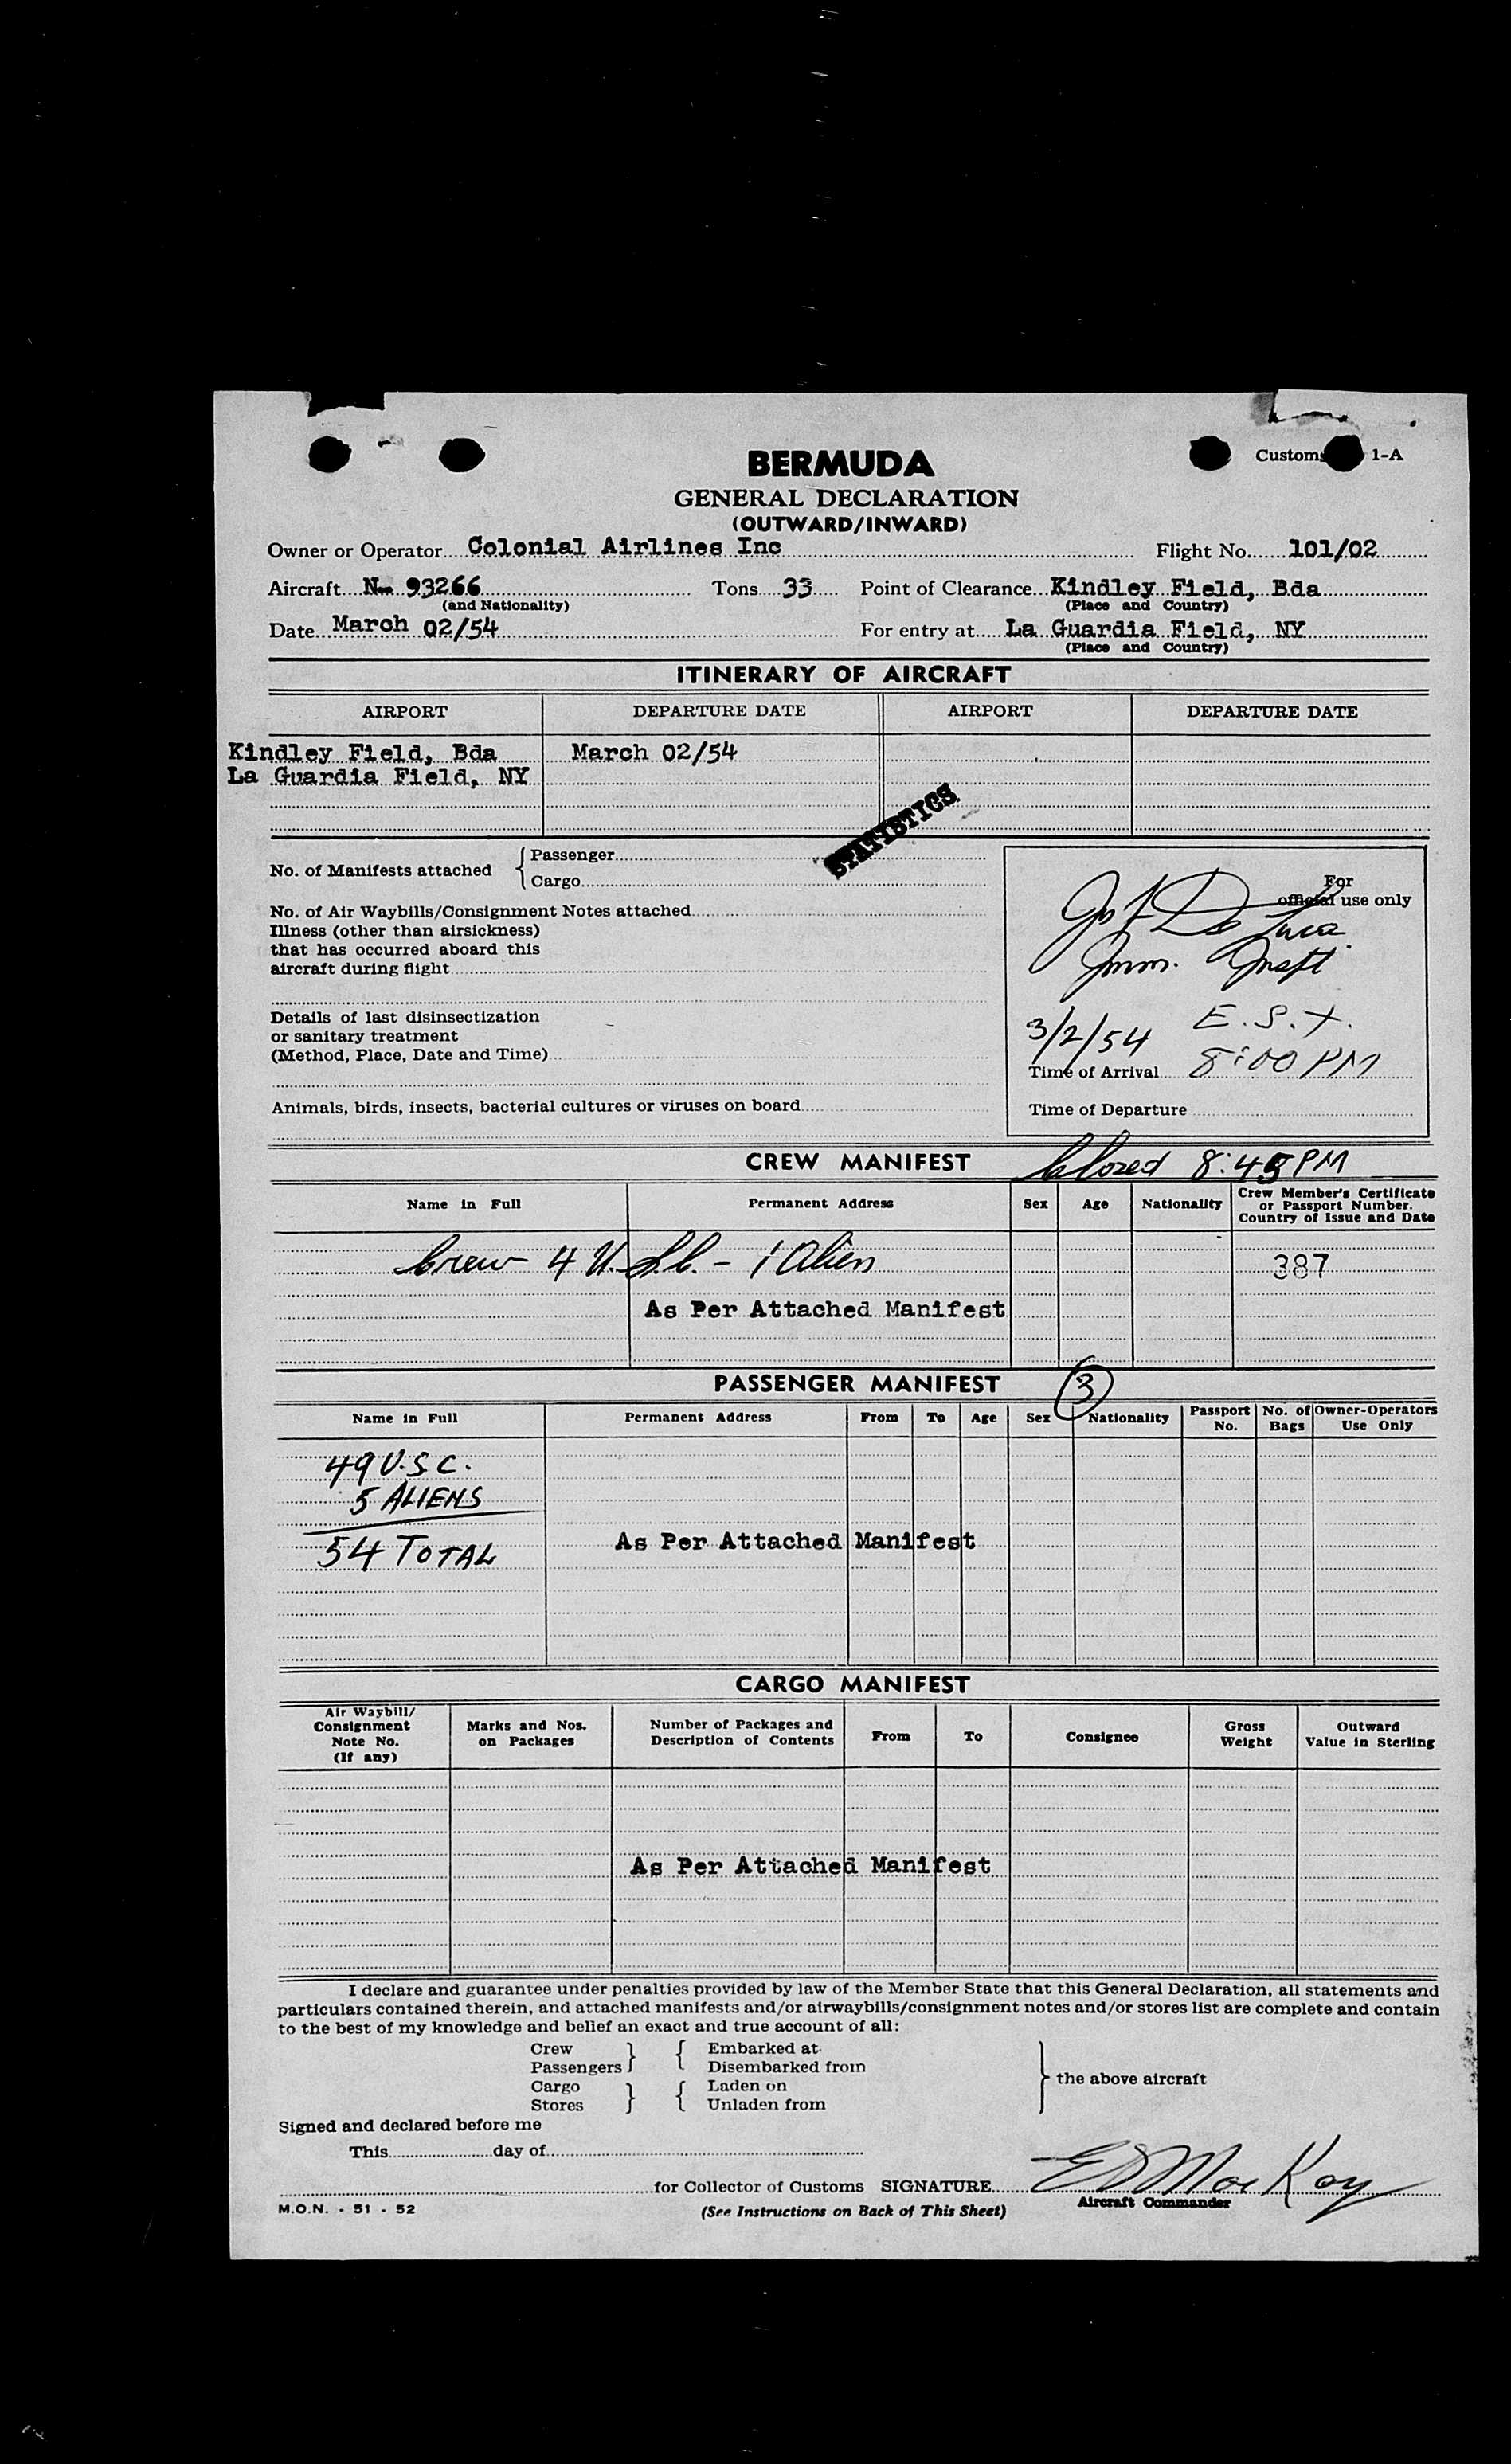 BERMUDA
Customs 1-A
GENERAL DECLARATION
(OUTWARD/INWARD)
Owner or Operator Colonial Airlines Inc Flight No. 101/02
Aircraft N 93266 Tons 33 Point of Clearance Kindley Field, Bda
(and Nationality) (Place and Country)
Date March 02/54 For entry at La Guardia Field, NY
(Place and Country)
ITINERARY OF AIRCRAFT
AIRPORT DEPARTURE DATE AIRPORT DEPARTURE DATE
Kindley Field, Bda March 02/54
La Guardia Field, NY
STATISTICS
No. of Manifests attached { Passenger
Cargo
No. of Air Waybills/Consignment Notes attached
Illness (other than airsickness)
that has occurred aboard this
aircraft during flight
Details of last disinsectization
or sanitary treatment
(Method, Place, Date and Time)
Animals, birds, insects, bacterial cultures or viruses on board
For
official use only
Jos F De Luca
Imm. Inspt
3/2/54 E.S.T.
Time of Arrival 8:00 PM
Time of Departure
CREW MANIFEST Closed 8:45 PM
Name in Full Permanent Address Sex Age Nationality Crew Member's Certificate
or Passport Number.
Country of Issue and Date
Crew 4 U.S.C. - 1 Alien 387
As Per Attached Manifest
PASSENGER MANIFEST 3
Name in Full Permanent Address From To Age Sex Nationality Passport No. No. of Bags Owner-Operators Use Only
49 U.S.C.
5 ALIENS
54 TOTAL As Per Attached Manifest
CARGO MANIFEST
Air Waybill/
Consignment
Note No.
(If any) Marks and Nos.
on Packages Number of Packages and
Description of Contents From To Consignee Gross
Weight Outward
Value in Sterling
As Per Attached Manifest
I declare and guarantee under penalties provided by law of the Member State that this General Declaration, all statements and
particulars contained therein, and attached manifests and/or airwaybills/consignment notes and/or stores list are complete and contain
to the best of my knowledge and belief an exact and true account of all:
Crew } { Embarked at
Passengers Disembarked from
Cargo } { Laden on } the above aircraft
Stores Unladen from
Signed and declared before me
This day of
for Collector of Customs SIGNATURE E D MacKay
Aircraft Commander
M.O.N. - 51 - 52 (See Instructions on Back of This Sheet)